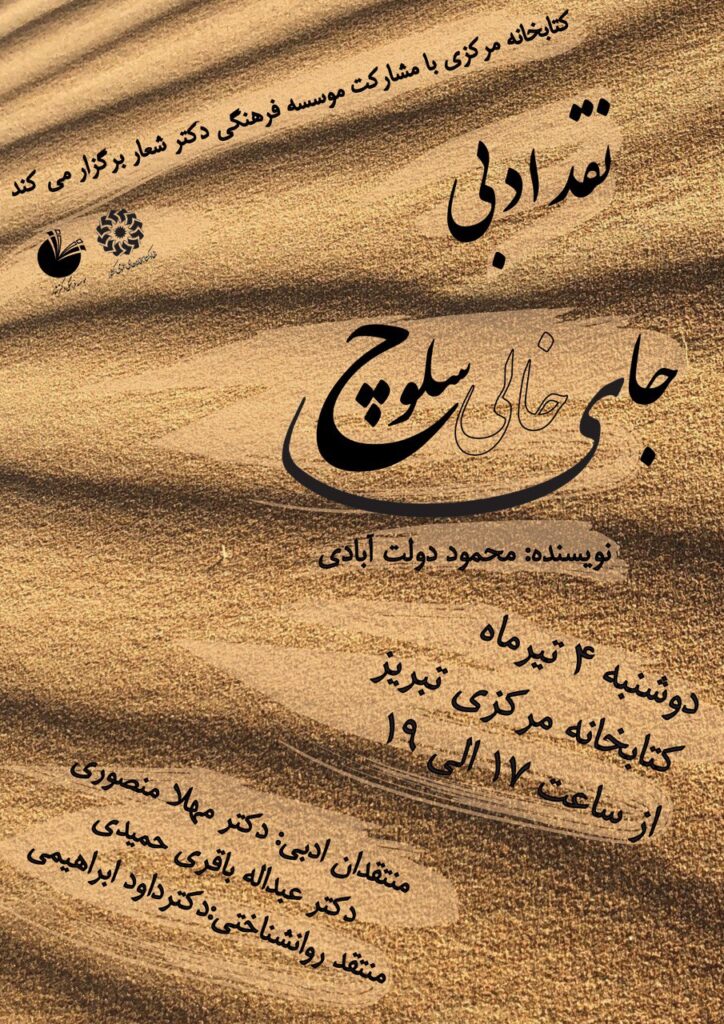 کتابخانه مرکزی با مشارکت موسسه فرهنگی دکتر شعار برگزار می کند
نقد ادبی
جای خالی سلوچ
نویسنده: محمود دولت آبادی
دوشنبه ۴ تیرماه
کتابخانه مرکزی تبریز
از ساعت ۱۷ الی ۱۹
منتقدان ادبی: دکتر مهلا منصوری
دکتر عبداله باقری حمیدی
منتقد روانشناختی:دکترداود ابراهیمی